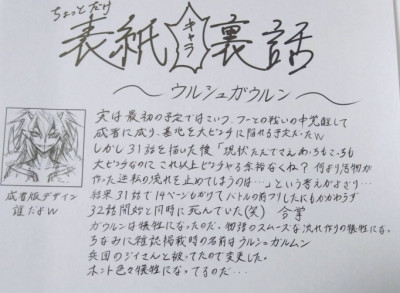 ちょっとだけ
表紙キャラ裏話
〜ウルシュガウルン〜
実は最初の予定ではこいつ、フーとの戦いの中覚醒して
成者に成り、基地を大ピンチに陥れる予定だったw
しかし31話を描いた後「現状たんでさんあっちもこっちも
大ピンチなのにこれ以上ピンチやる余裕なくね?何より活物が
作った逆転の流れを止めてしまうのは…」という考えがよぎり…
結果31話で14ページもかけてバトルの前フリしたにもかかわらず
32話開始と同時に死んでいた(笑) 合掌
ガウルンは犠牲になったのだ。物語のスムーズな流れ作りの犠牲にな。
ちなみに雑誌掲載時の名前はウルシュガルムン
兵団のジイさんと被ってたので変更した。
ホント色々犠牲になってるのだ…
成者版デザイン
誰だよw